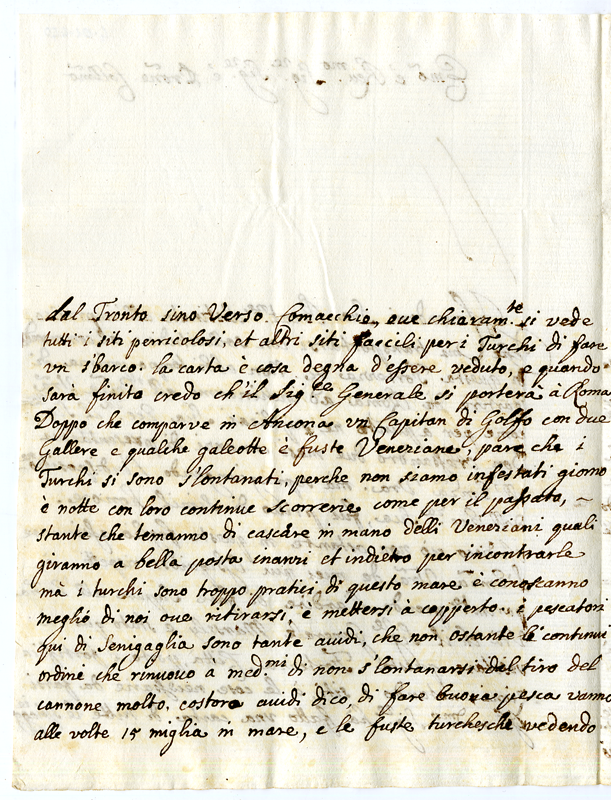 dal Tronto sino Verso Comacchio, oue chiaram.te si vede
tutti i siti perricolosi, et altri siti faccili per i Turchi di fare
vn sbarco. la carta è cosa degna d'essere veduto, e quando
sarà finito credo ch'il Sig.re Generale si porterà à Roma
Doppo che comparve in Ancona vn Capitan di Golffo con due
Gallere e qualche galeotte è fuste Veneziane, pare che i
Turchi si sono s'lontanati, perche non siamo infestati giorno
è notte con loro continue scorrerie come per il passato, ~
stante che temanno di cascare in mano delli Veneziani quali
giranno a bella posta inanzi et indietro per incontrarle
mà i turchi sono troppo pratici di questo mare è conoscanno
meglio di noi oue ritirarsi, è mettersi a copperto. i pescatori
qui di Senigaglia sono tante auidi, che non ostante le continui
ordini che rinuouo à med.mi di non s'lontanarsi del tiro del
cannone molto, costoro auidi dico, di fare buona pesca vanno
alle volte 15 miglia in mare, e le fuste turchesche vedendo